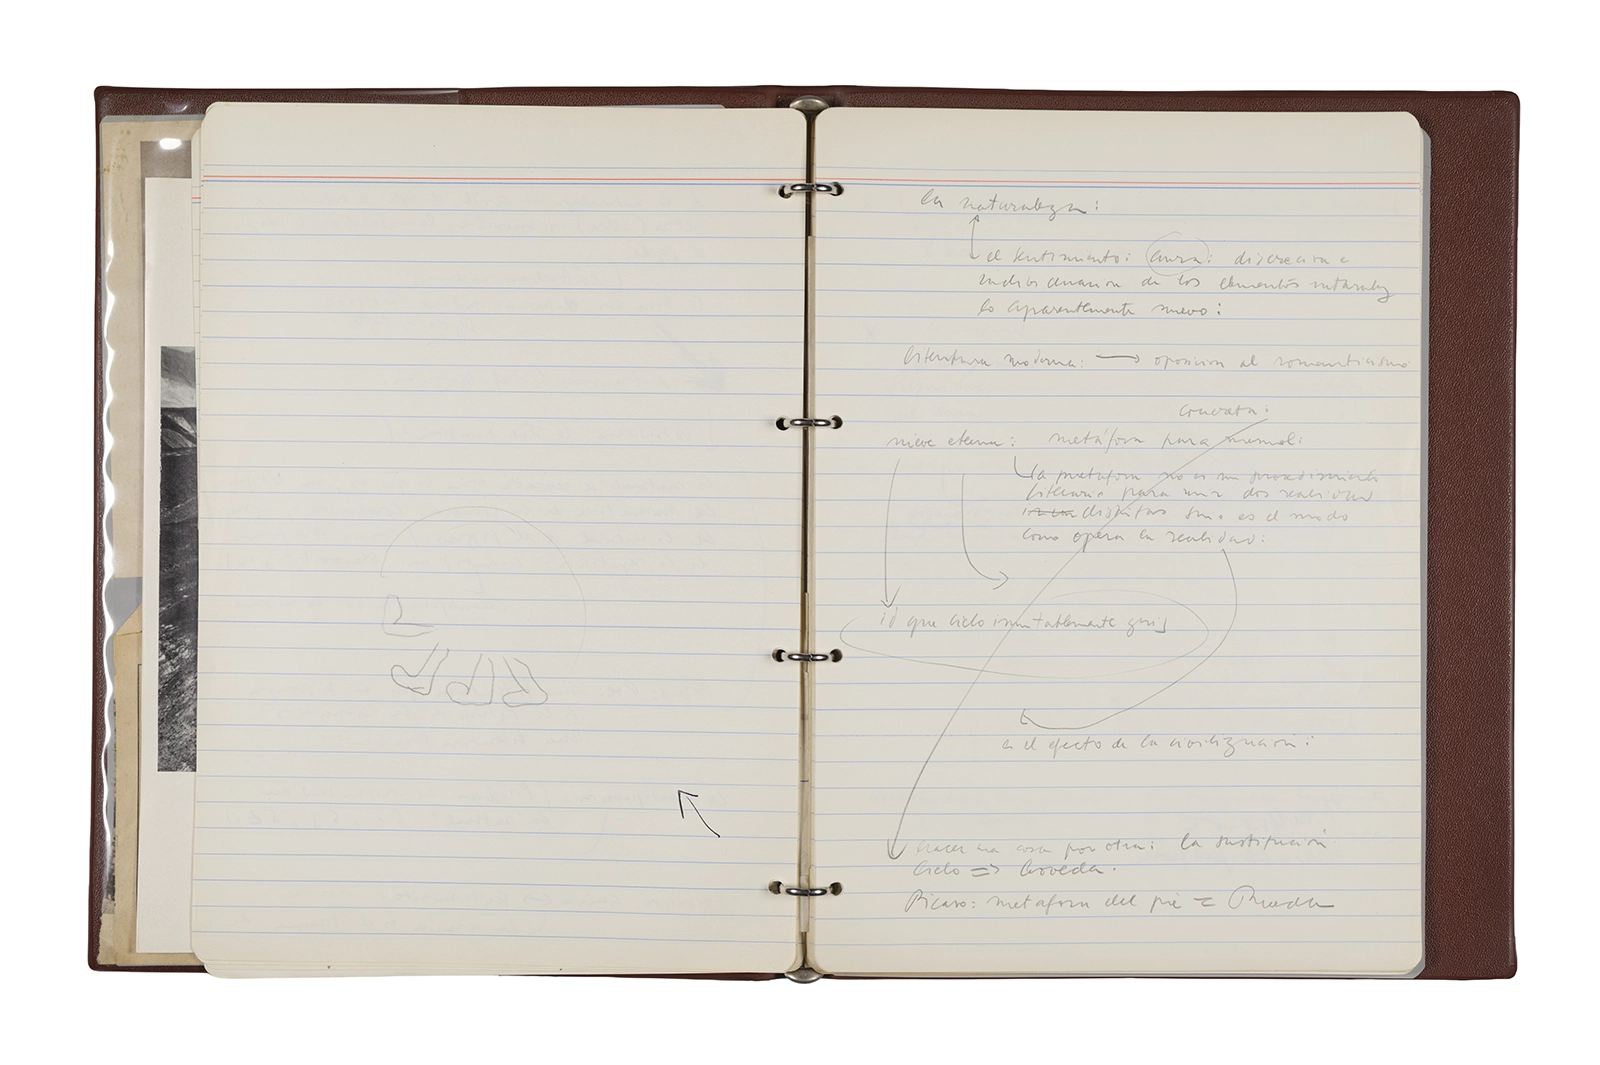 la naturaleza:
el sentimiento: aura: discrecion e
de los elementos naturales
lo aparentemente nuevo:
literatura moderna: → oposicion al romanticismo
concreta:
nieve eterna: metáfora para
la metafora no es un procedimiento
literario para unir dos realidades
distintas sino es el modo
como opera la realidad:
que cielo inmutablemente gris
es el efecto de la civilizacion:
hacer una cosa por otra: la sustitución
Cielo => boveda.
Picaso: metafora del pie = Rueda